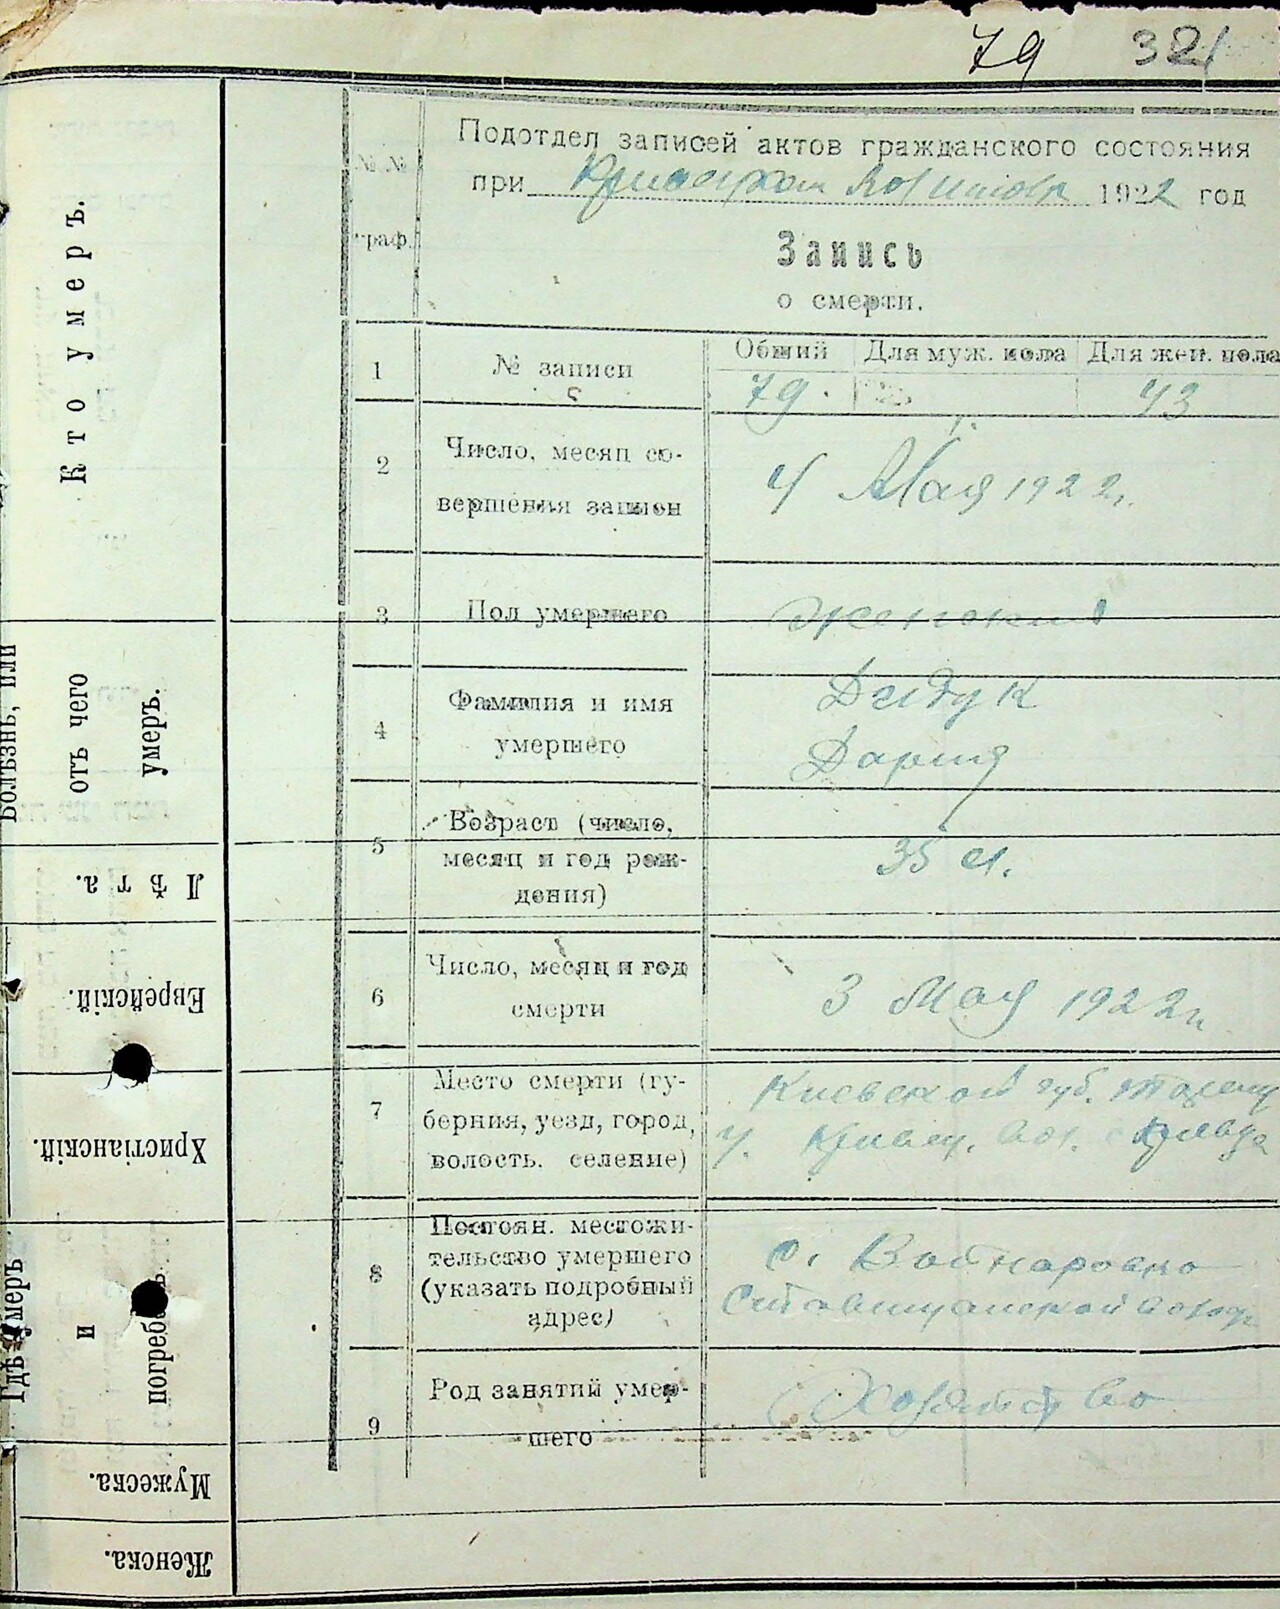 79 321
Подотдел записей актов гражданского состояния
при 1922 год
№ №
граф.
Запись
о смерти.
1 № записи
Общий Для муж. пола Для жен. пола
79 43
2 Число, месяц со-
вершения записи
4 Мая 1922 г.
3 Пол умершего
женский
4 Фамилия и имя
умершего
Дидук
Дария
5 Возраст (число,
месяц и год рож-
дения)
35 л.
6 Число, месяц и год
смерти
3 Мая 1922 г.
7 Место смерти (гу-
берния, уезд, город,
волость. селение)
Киевской губ.
у. Кривец. вол.
8 Постоян. местожи-
тельсаво умершего
(указать подробный
адрес)
с. Войнаровка
Ставищанской
9 Род занятий умер-
шего
Кто умеръ.
Болѣзнь, или
отъ чего
умеръ.
Лѣта.
Еврейскій.
Христіанскій.
Гдѣ умеръ
и
Мужеска.
Женска.